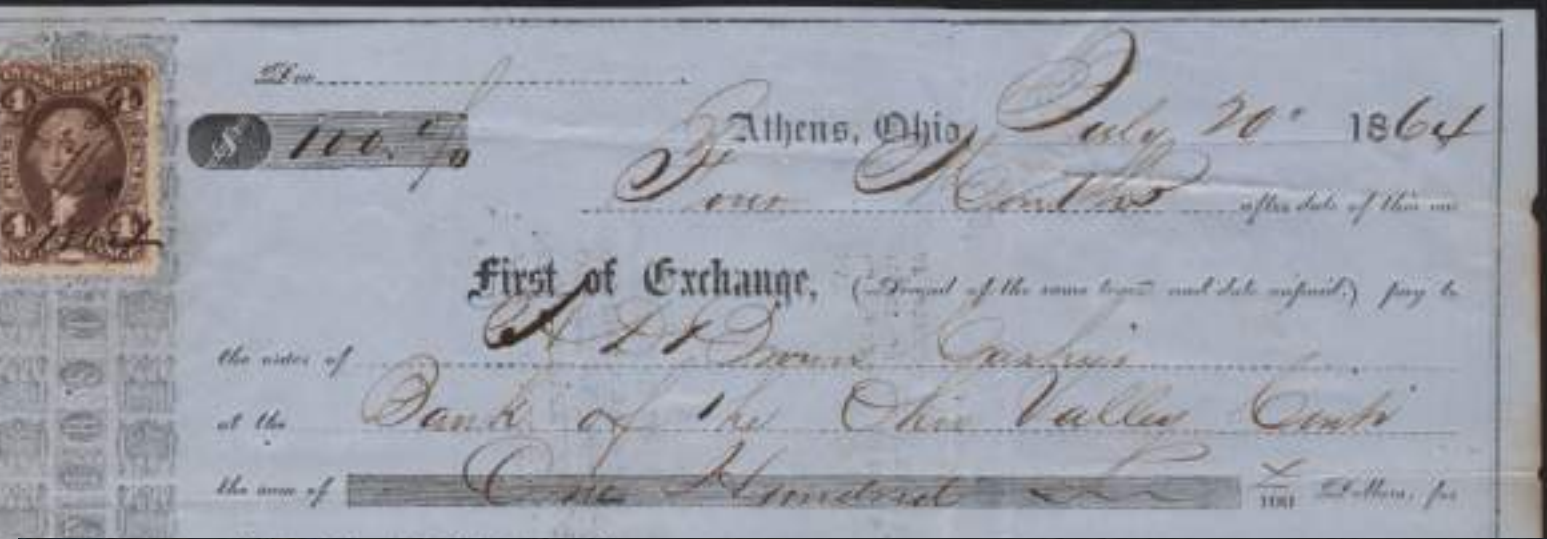 Due
$ 100.
Athens, Ohio, July 20" 1864
Four Months after date of this our
First of Exchange, (Second of the same tenor and date unpaid,) pay to
the order of Cashier
at the Bank of the Ohio Valley Cinti
the sum of One Hundred /100 Dollars, for
4 4
4 4
1864